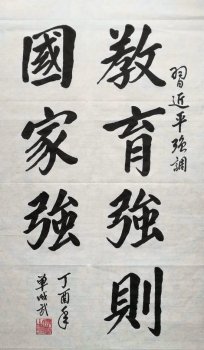 習近平強調
教育強則
國家強
丁酉年
單成武